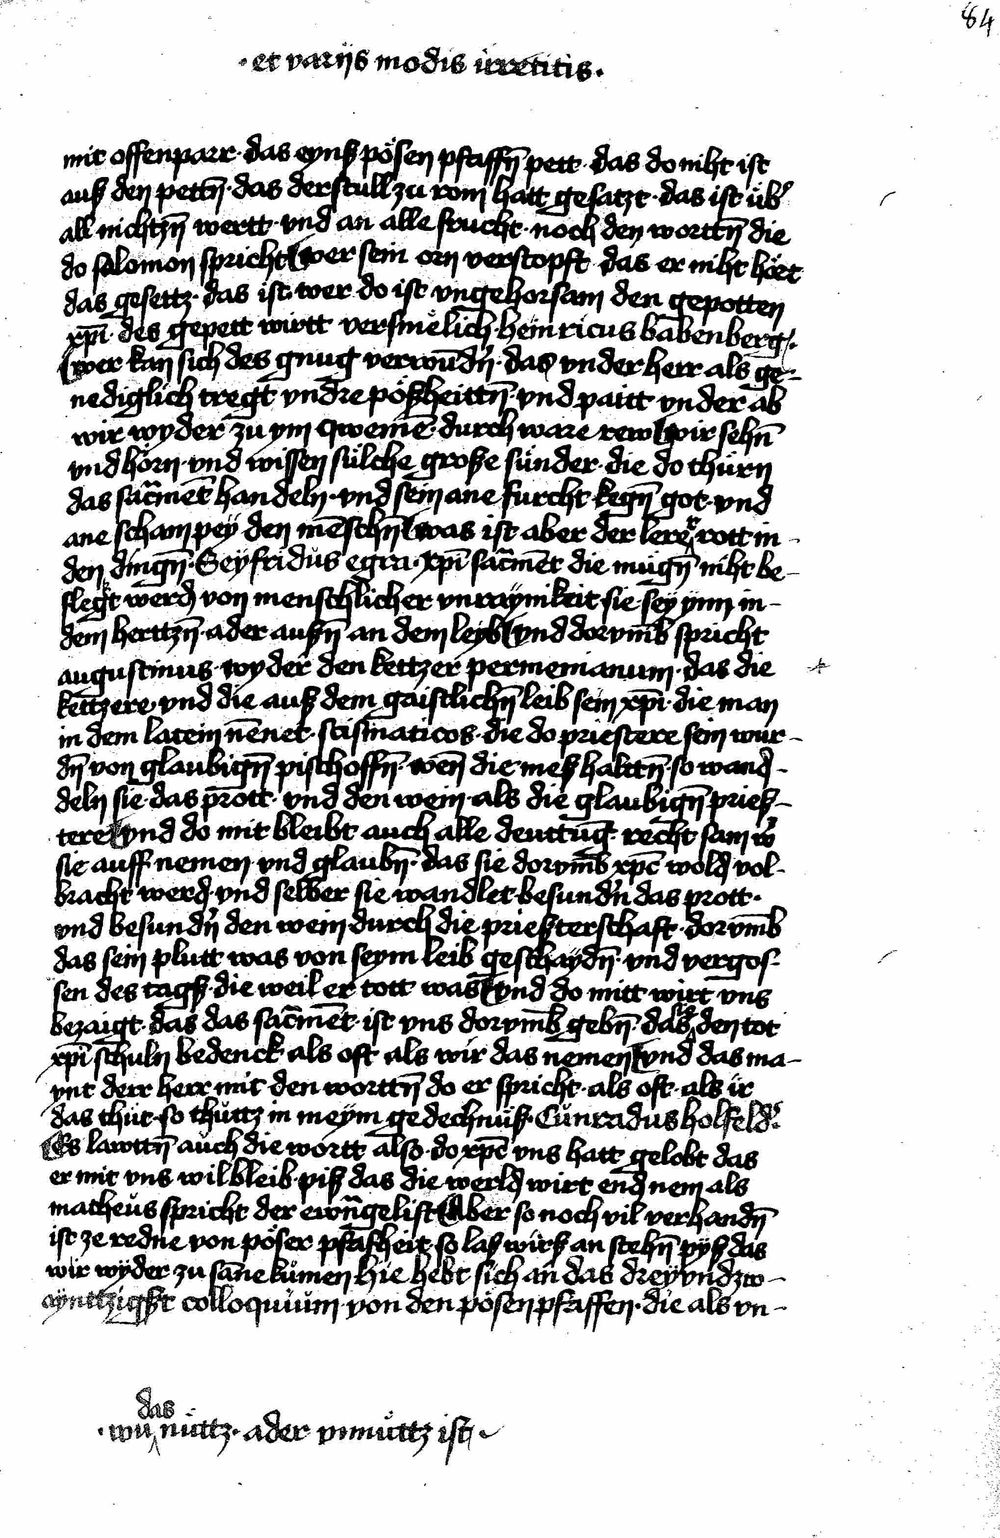 84
· et variis modis irretitis ·
mit offenparr · das eynß pösen pfaffn̄ pett · das do niht ist
auß den pettn̄ · das der stull zu rom hatt gesatzt · das ist üb᷑
all nichtzn̄ wertt · vnd an alle frucht · noch den worttn̄ die
do salomon spricht wer sein orn verstopft das er niht hört
das gesettz · das ist wer do ist vngehorsam den gepotten
xp̄i · des gepett wirtt versmelich · heinricus babenberg ·
wer kan sich des gnug verwūdn̄ · das vnder herr als ge-
nediglich tregt vndre pößheittn̄ · vnd paitt vnder ab
wir wyder zu ym qwemē · durch ware rew wir sehn̄
vnd hörn · vnd wissen sülche große sünder · die do thürn
das sac̄met handeln · vnd sein ane furcht kegn̄ got · vnd
ane scham pey den mēschn̄ was ist aber der lerer rott in-
den dingn̄ · Seyfridus egra · xp̄i sac̄met die mügn̄ niht be-
flekt werd von menschlicher vnraynikeit sie sey ynn in-
dem herttzn̄ · ader außn̄ an dem leyb vnd dorvmb spricht
augustinus · wyder den kettzer permenianum · das die
kettzere vnd die auß dem gaistlichn̄ leib sein xp̄i · die man
in dem latein nēnet · scismaticos · die do priestere sein wur-
dn̄ von glaubign̄ pischoffn̄ · wen̄ die meß haltn̄ · so wand-
deln sie · das prott · vnd den wein · als die glaubign̄ prieß-
tere vnd do mit bleibt auch alle deuttūg · recht sam w᷑
sie auff nemen vnd glaubn̄ · das sie dorvmb xp̄c wold vol-
bracht werd · vnd selber sie wandlet · besundn̄ das prott ·
vnd besundn̄ den wein durch die prießterschaft · dorvmb
das sein plutt was von seym leib geschaydn̄ · vnd vergos-
sen des tagß · die weil er tott was vnd do mitt wirt vns
bezaigt · das das sac̄met · ist vns dorvmb gebn̄ · das den tot
xp̄i schuln bedenck als oft als wir das nemen vnd das ma-
ynt derr herr mit den worttn̄ do er spricht · als oft · als ir
das thüt · so thüttz in meym gedechnüß · Cunradus holfeld᷑ ·
Es lawttn̄ auch die wortt also · do xp̄c vns hatt gelobt das
er mit vns wil bleib · piß das die werld wirt end nem als
matheus spricht der ewāgelist Aber so noch vil verhandn̄
ist ze redne von pöser pfafheit · so laß wirß an stehn̄ pyß das
wir wyder zu sāne kumen hie hebt sich an das dreyvndzw-
aynttzigßt colloquium von den pösen pfaffen · die als vn-
das
· wu nüttz · ader vnnüttz ist ·